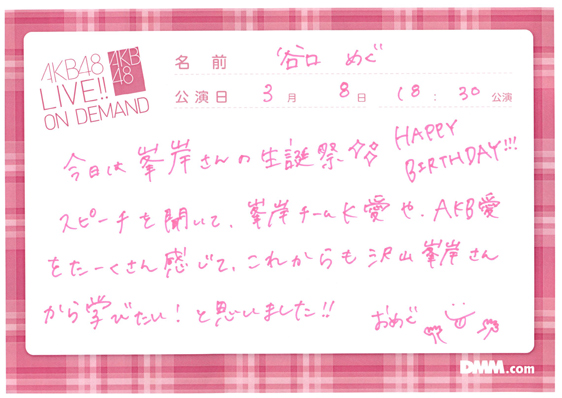 AKB48
LIVE!!
ON DEMAND
AKB
48
名 前 谷口 めぐ
公演日 3月 8日 18:30公演
今日は峯岸さんの生誕祭 HAPPY BIRTHDAY!!!
スピーチを聞いて、峯岸チームK愛や、AKB愛
をたーくさん感じて、これからも沢山峯岸さん
から学びたい!と思いました!! おめぐ
DMM.com